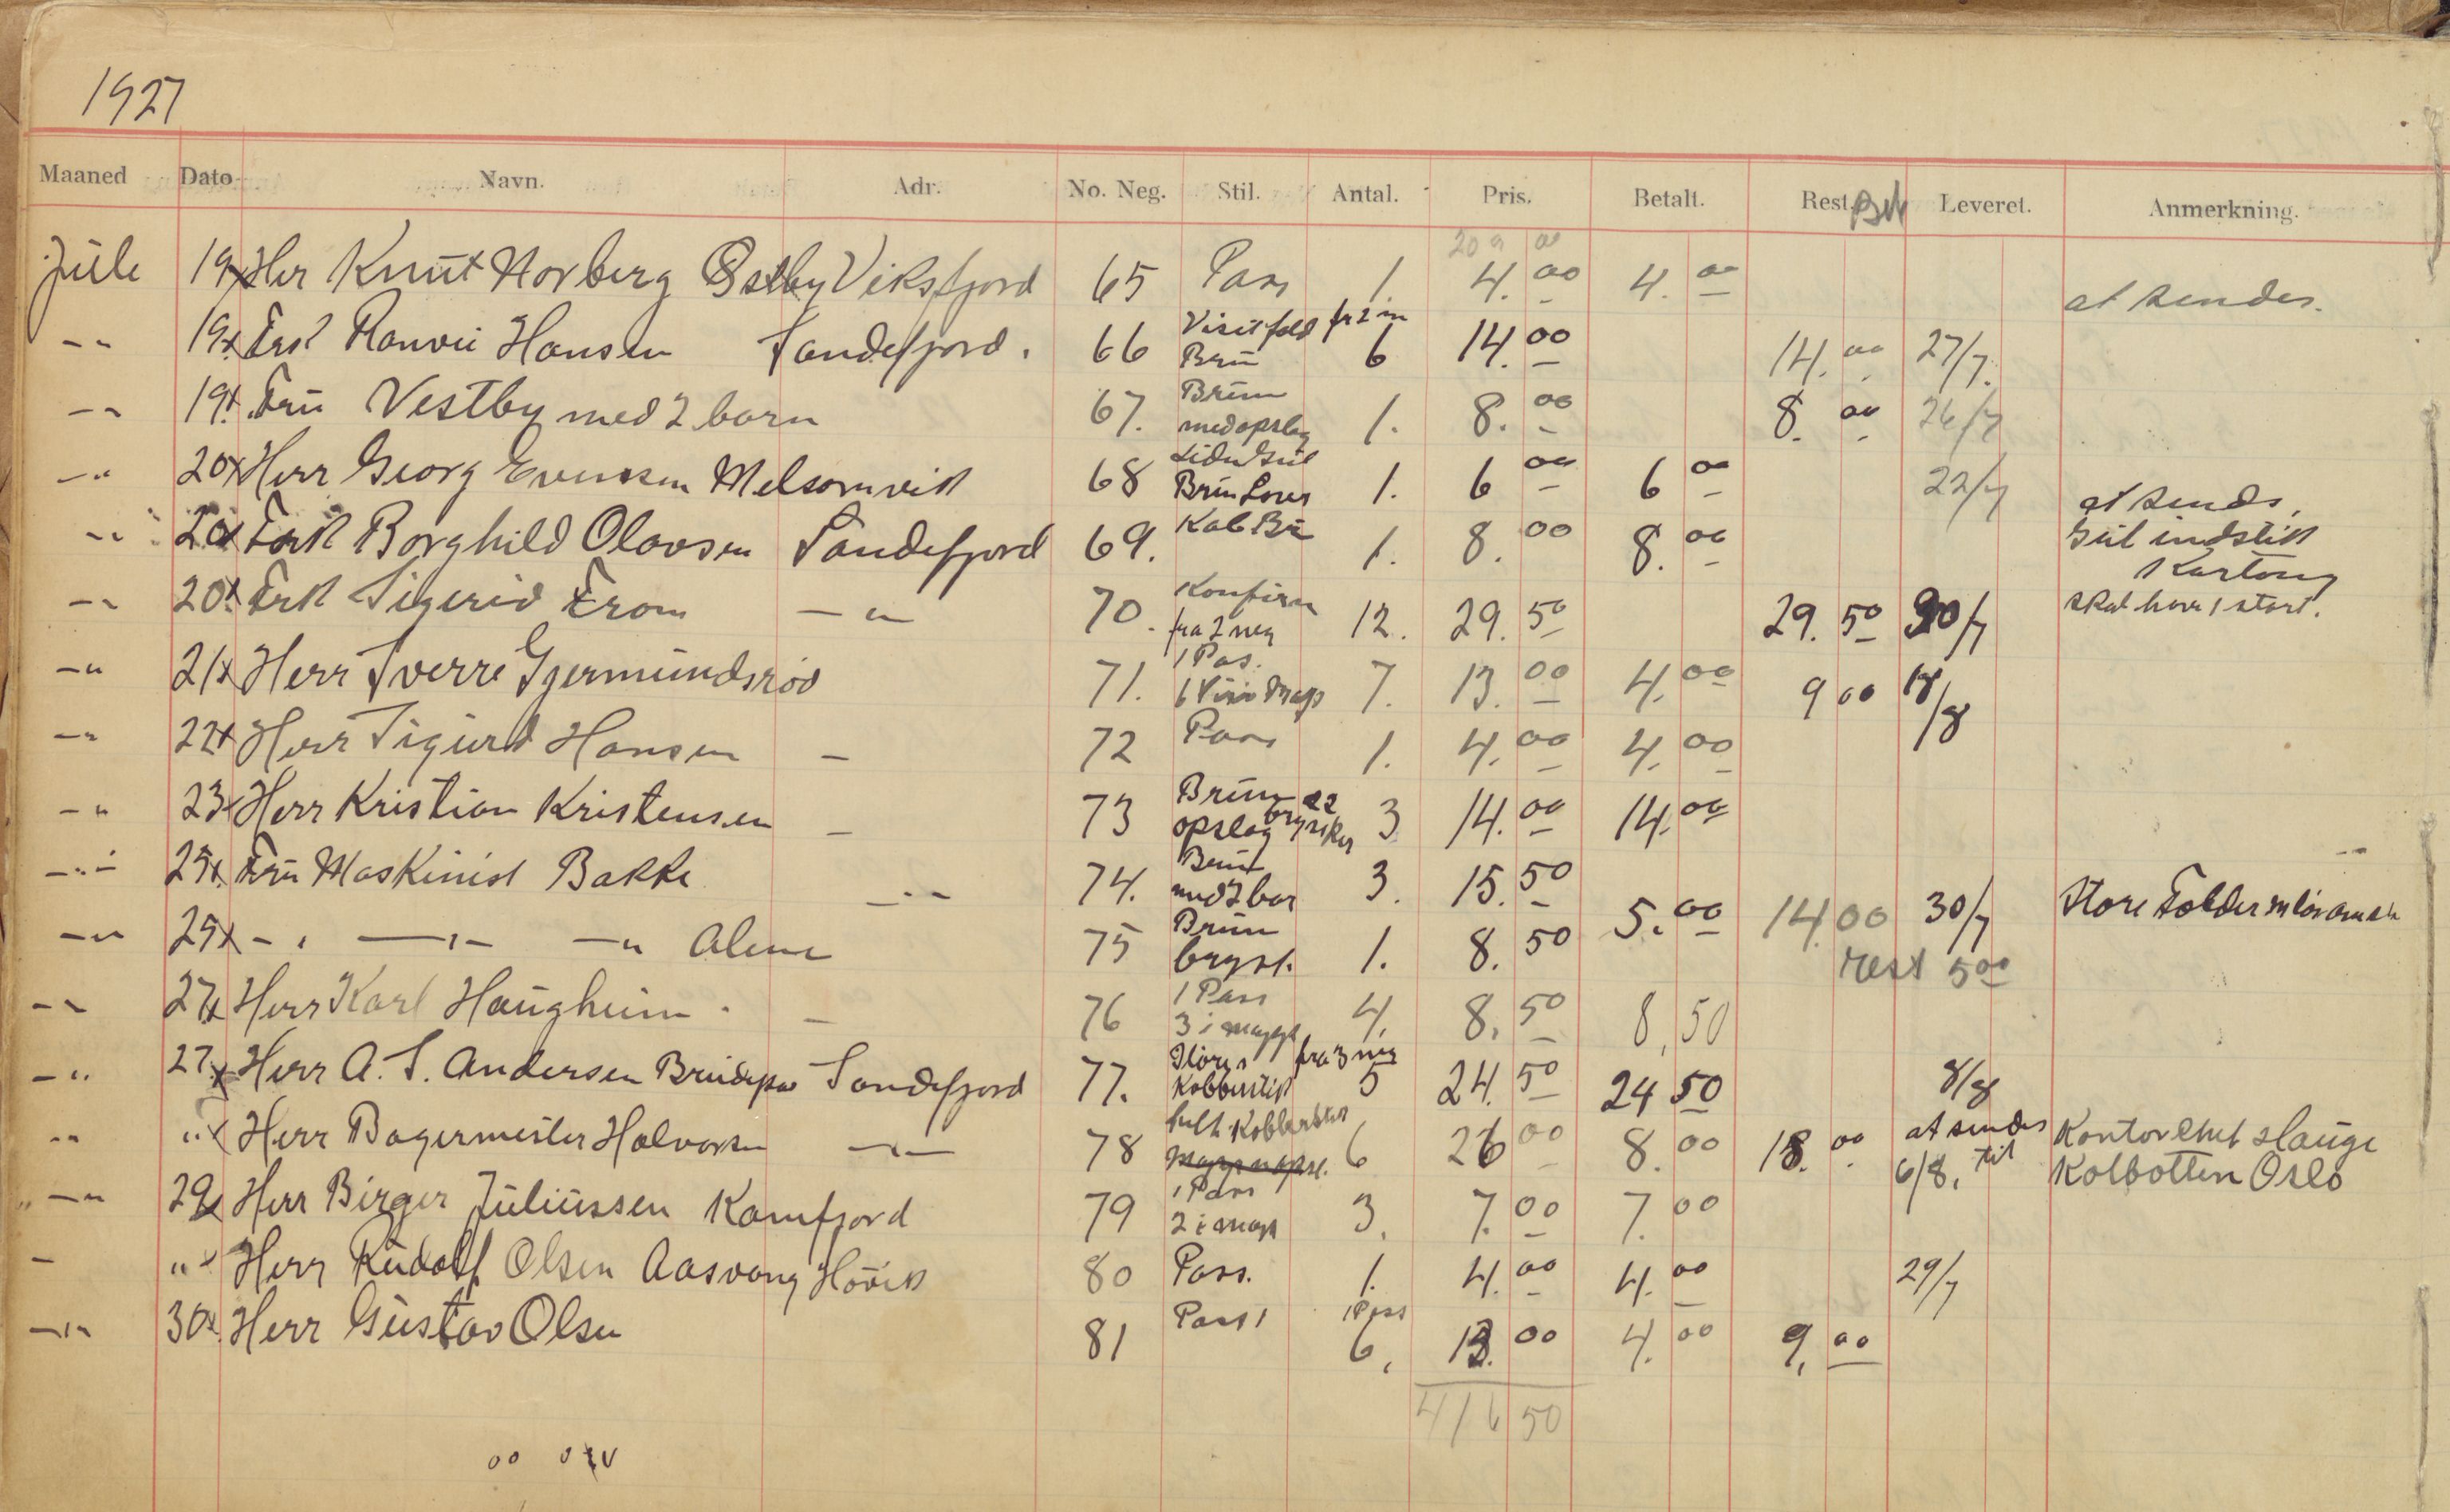 1927
Maaned Dato Navn. Adr. No. Neg. Stil. Antal. Pris. Betalt. Rest. Leveret. Anmerkning.
209 00
Jule 19 x Herr Knut Norberg Østby Viksfjord 65 Pass 1. 4.00 4.00 at sendes.
-"- 19 x Frk Ranvei Hansen Sandefjord. 66 Visitfold fr 2 n Brun 6 14.00 14.00 27/7.
-"- 19 x Fru Vestby med 2 barn 67. Brun med opslag 1. 8.00 8.00 26/7
-"- 20 x Herr Georg Evensen Melsomvik 68 Brun 1. 6 00 6 00 22/7 at sends,
-"- 20 x Frk Borghild Olavsen Sandefjord 69. Kab Br 1. 8.00 8.00 Gul indstik Kartong
-"- 20 x Frk Sigerid From -"- 70. Konfirm fra 2 neg 12. 29.50 29.50 30/7 skal have 1 stort.
-"- 21 x Herr Sverre Gjermundsrød 71. 1 Pas. 6 Visit Map 7. 13.00 4.00 9 00 17/8
-"- 22 x Herr Sigurd Hansen - 72 Pass 1. 4.00 4.00
-"- 23 x Herr Kristian Kristensen - 73 Brun opslag 3 14.00 14.00
-"- 25 x Fru Maskinist Bakke -"- 74. Brun med 2 bar 3. 15.50 5.00 14.00 30/7 Store Folder
-"- 25 x -"- -"- -"- Alene 75 Brun bryst. 1. 8.50 rest 5 00
-"- 27 x Herr Karl Haugheim - 76 1 Pass 3 i mappe 4. 8.50 8,50
-"- 27. x Herr A. S. Andersen Brudepar Sandefjord 77. Kobberstik fra 3 neg 5 24.50 24 50 8/8
-"- " x Herr Bagermester Halvorsen -"- 78 helt Kobberstik 6 26 00 8.00 18.00 at sendes til 6/8. Kontorchef Hauge Kolbotten Oslo
-"- 29 x Herr Birger Juliussen Kamfjord 79 1 Pass 2 i map 3. 7.00 7.00
- " x Herr Rudolf Olsen Aasvang Høvik 80 Pass. 1. 4.00 4.00 29/7
-"- 30 x Herr Gustav Olsen 81 Pass 1 1 Pass 6, 13.00 4.00 9,00
416 50